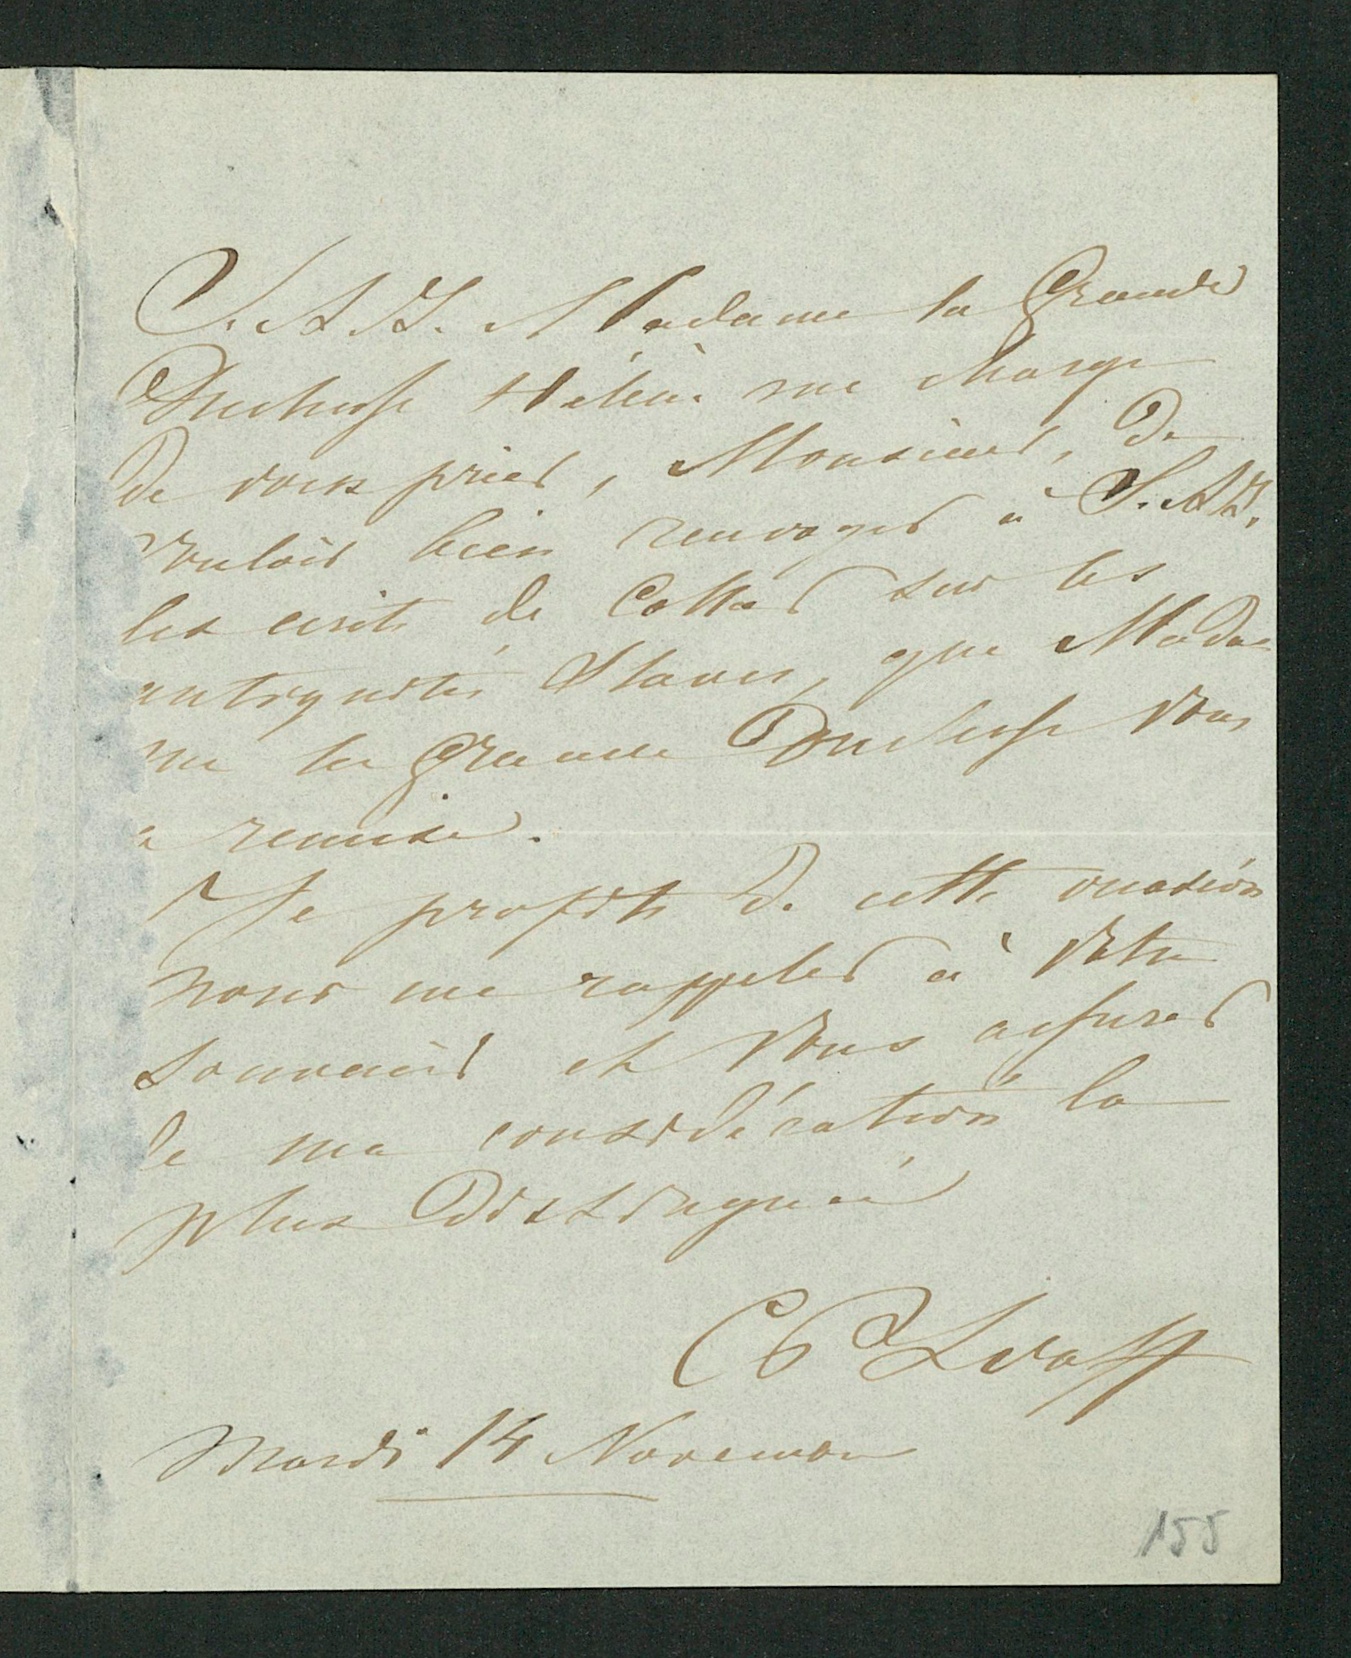 S. A. I. Madame la Grande
Duchesse Hélène me charge
de vous prier, Monsieur, de
vouloir bien renvoyer à S. A. I.
les écrits de Collar sur les
antiquités Slaves, que Mada-
me la Grande Duchesse Vous
a remise.
Je profite de cette occasion
pour me rappeler à Votre
souvenir et Vous assurer
de ma considération la
plus distinguée
Lvoff
Mardi 14 Novembre
155